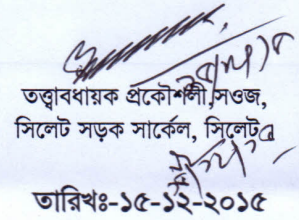 তত্ত্বাবধায়ক প্রকৌশলী,সওজ,
সিলেট সড়ক সার্কেল, সিলেট
তারিখঃ-১৫-১২-২০১৫